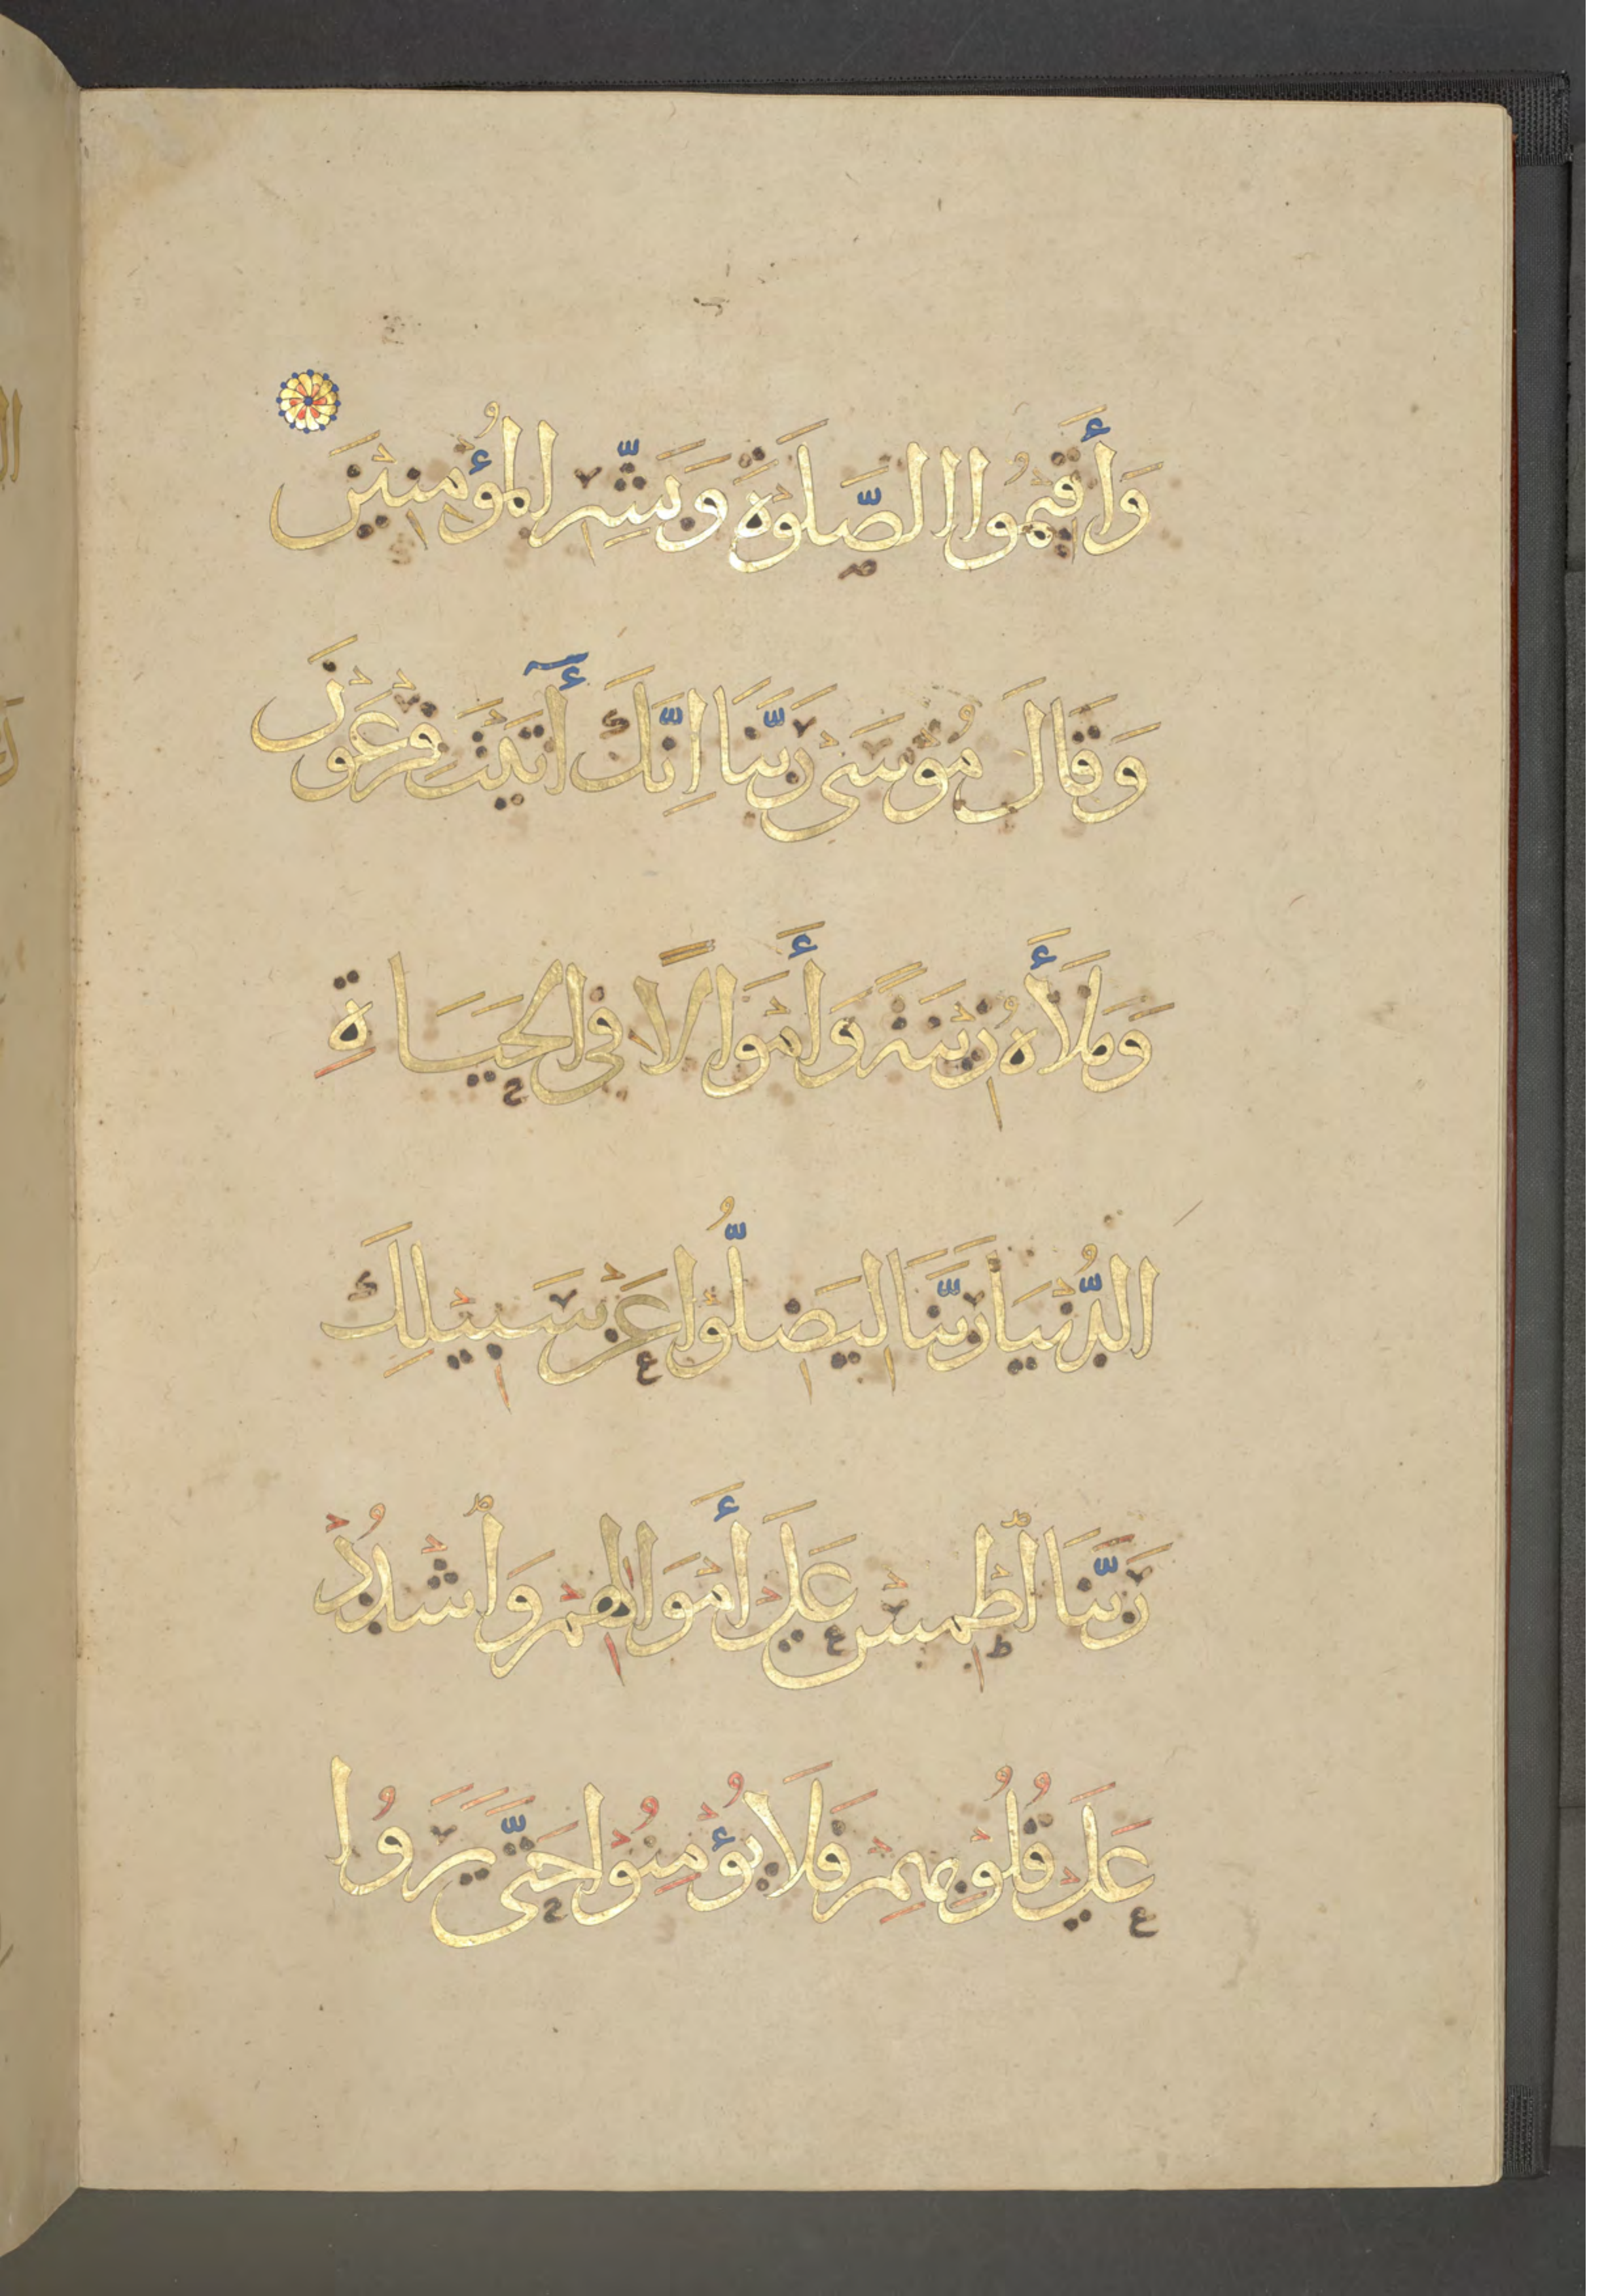 وَأَقِيمُوا الصَّلَوةَ وَبَشِّرِ الْمُؤْمِنِينَ
وَقَالَ مُوْسَىٰ رَبَّنَا اِنَّكَ أٓتَيْتَ فِرْعَوْنَ
وَمَلَأَهُ زِيْنَةً وَأَمْوَالًا فِي الْحَيَاةِ
الدُّنْيَا رَبَّنَا لِيَضِلُّوْا عَنْ سَبِيْلِكَ
رَبَّنَا ٱطْمِسْ عَلَىْ أَمْوَالِهِمْ وَٱشْدُدْ
عَلَىْ قُلُوْبِهِمْ فَلَا يُؤْمِنُوْا حَتَّى يَرَوُا